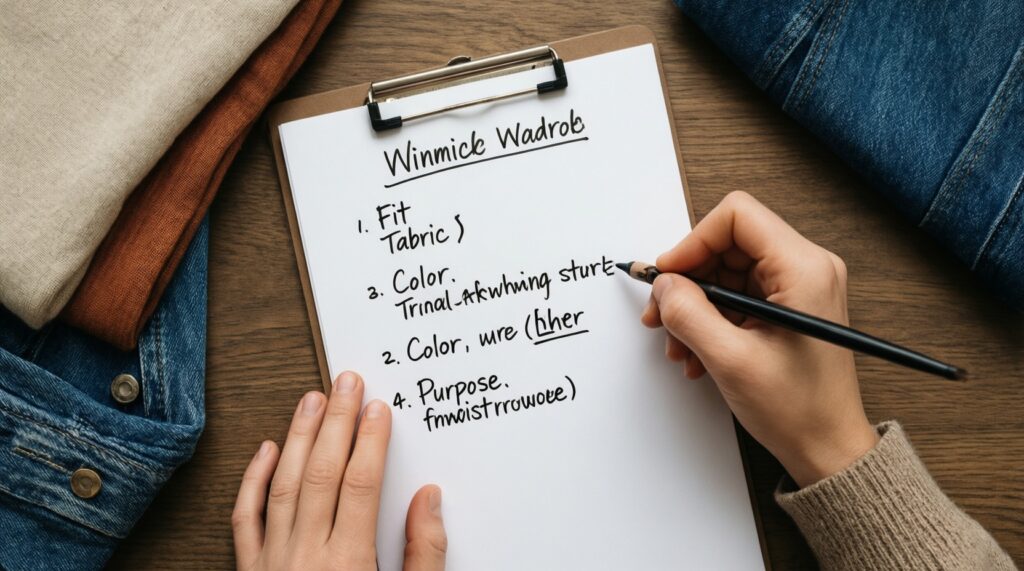 Winmick Wadrob
1. Fit
Tabric )
3. Color.
Trinal-Afwhning sturt
2. Color, wre (hher
4. Purpose.
fmwistrrowote)